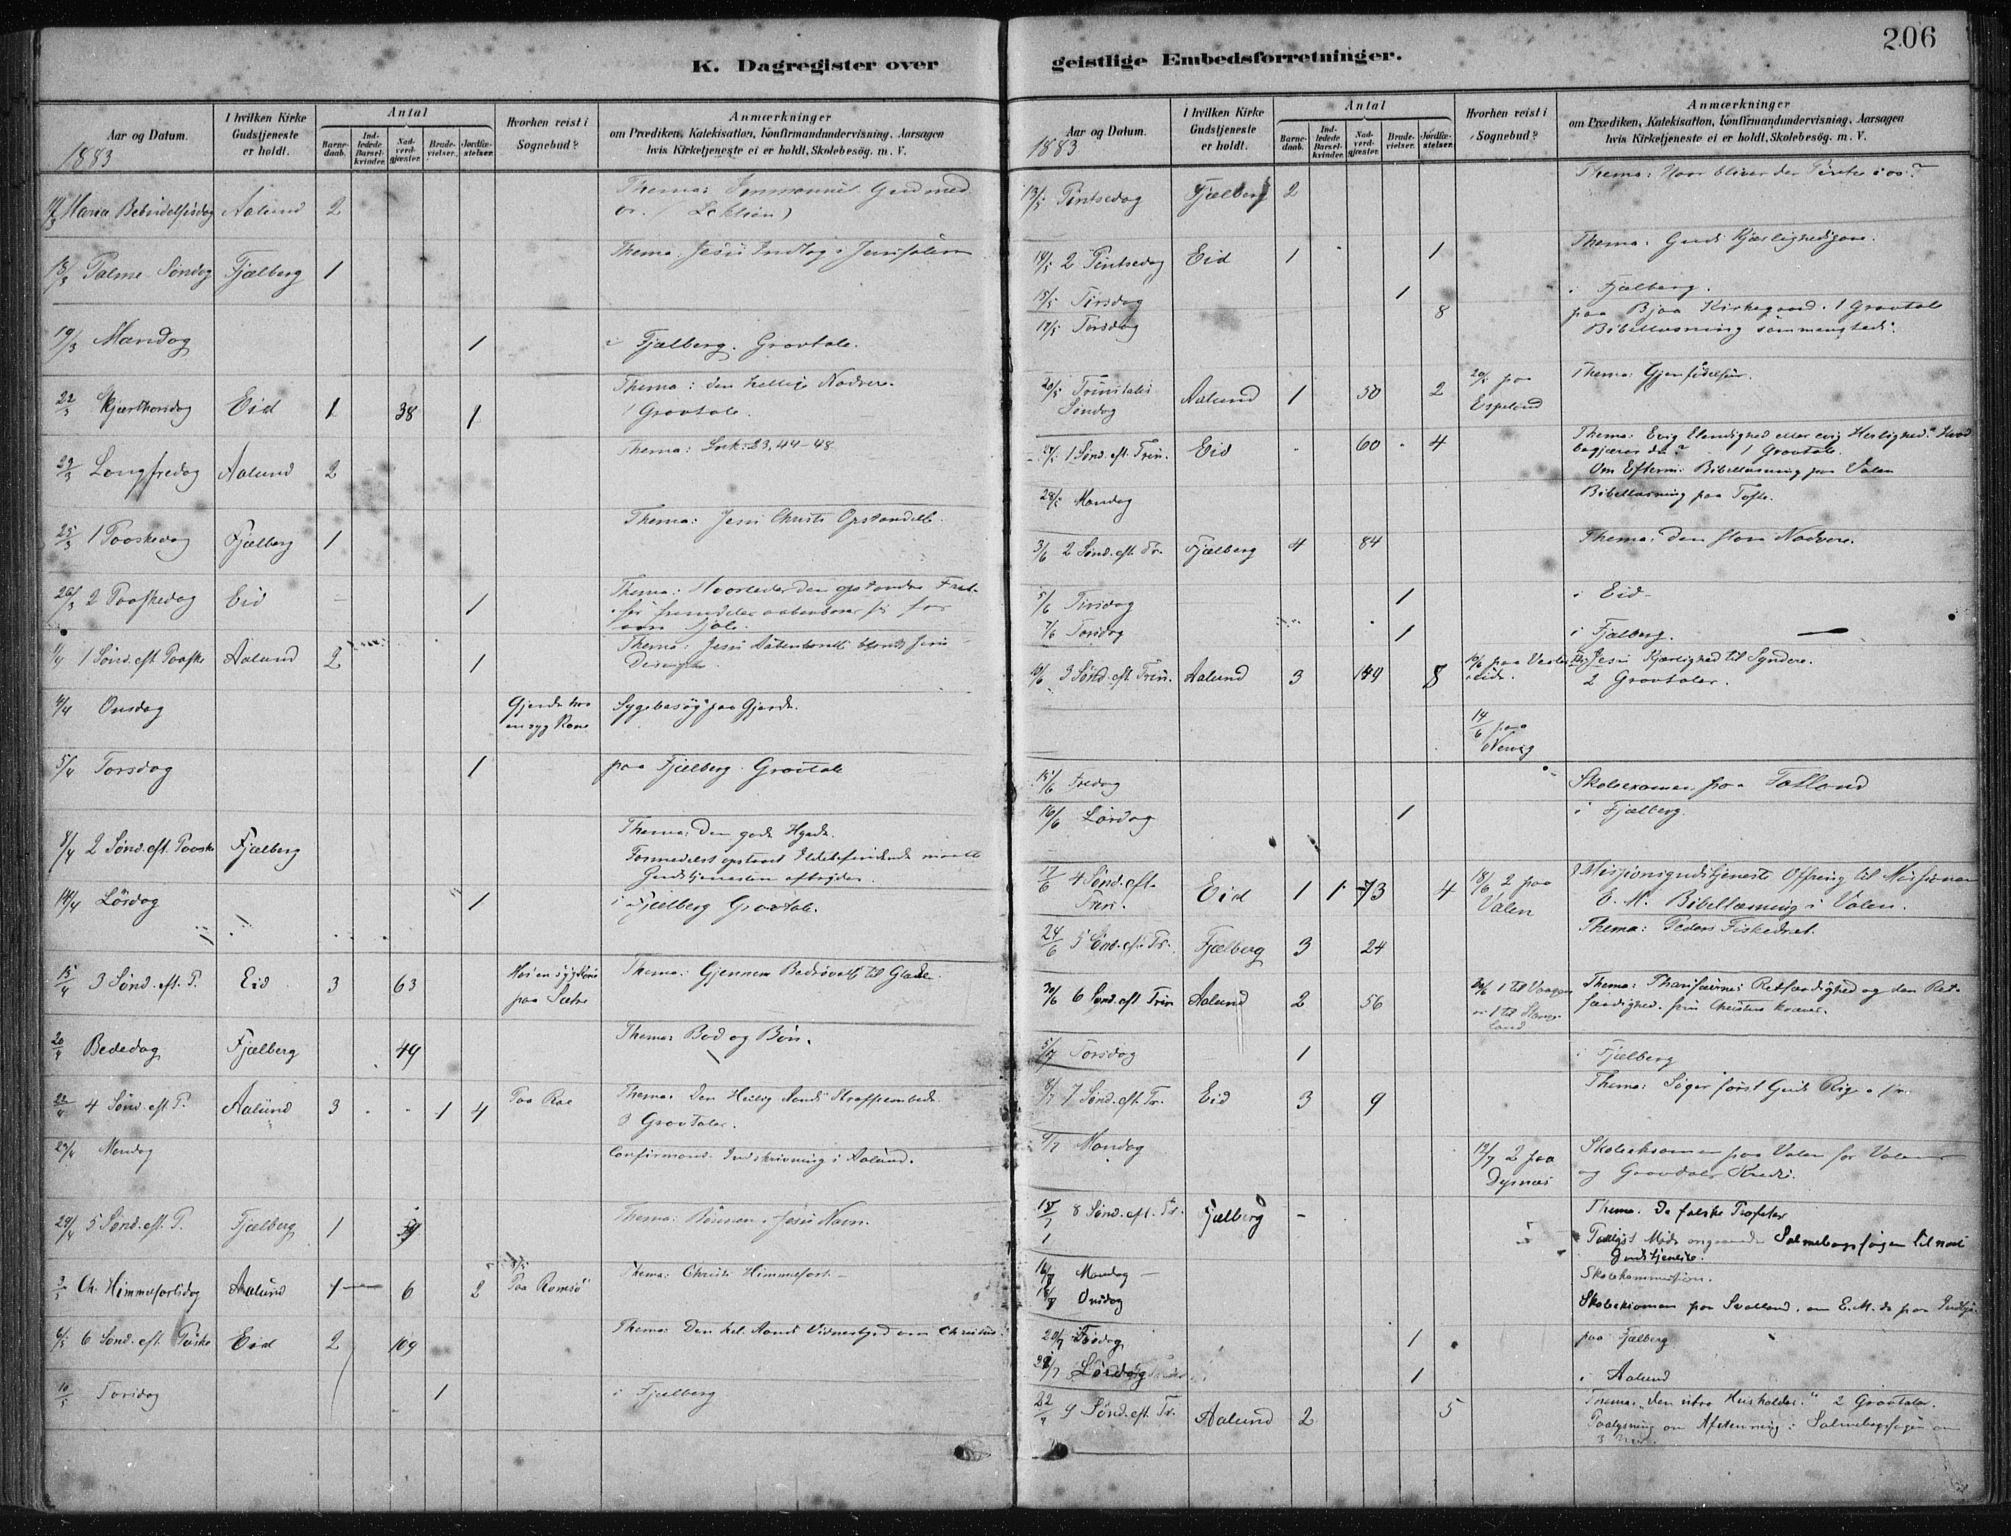 206
K. Dagregister over geistlige Embedsforretninger.
Aar og Datum.
1883
I hvilken Kirke Gudstjeneste er holdt.
Antal
Barnedaab.
Indledede Barselkvinder.
Nadverdgjæster.
Brudevielser.
Jordfæstelser.
Hvorhen reist i Sognebud?
Anmærkninger
om Prædiken, Katekisation, Konfirmandundervisning, Aarsagen
hvis Kirketjeneste ei er holdt, Skolebesøg. m. V.
Maria Bebudelsesdag Aalund 2 Thema: Immanuel Gud med os. (Lektion)
18/3 Palme Søndag Fjælberg 1 Thema: Jesu Indtog i Jerusalem
19/3 Mandag 1 i Fjælberg. Gravtale.
22/3 Skjærthorsdag Eid 1 38 1 Thema: den hellige Nadvere.
1 Gravtale.
23/3 Langfredag Aalund 2 Thema: Luk: 23, 44-48
25/3 1 Paaskedag Fjælberg 1 Thema: Jesu Christi Opstandelse.
26/3 2 Paaskedag Eid 1 Thema: Hvorledes den opstandne Frelser fremdeles aabenbarer sig for
1/4 1 Sønd. eft. Paaske Aalund 2 1 Thema: Jesu Aabenbarelse blandt sine Disciple.
4/4 Onsdag Gjerde hos en syg Kone Sygebesøg paa Gjerde.
5/4 Torsdag 1 paa Fjælberg. Gravtale
8/4 2 Sønd. eft. Paaske Fjælberg Thema: Den gode Hyrde.
Formedelst opstaaet Ildebefindende maatte
Gudstjenesten afbrydes.
14/4 Lørdag 1 i Fjælberg Gravtale.
15/4 3 Sønd. eft. P. Eid 3 63 Hos en syg Kone paa Sætre Thema: Gjennem Bedrøvelse til Glæde.
20/4 Bededag Fjælberg 49 Thema: Bod og Bøn.
22/4 4 Sønd. eft. P. Aalund 3 1 4 Paa Rae Thema: Den Hellig Aands Straffeembede.
3 Gravtaler.
23/4 Mandag Confirmand. Indskrivning i Aalund.
29/4 5 Sønd. eft. P. Fjælberg 1 Thema: Bønnen i Jesu Navn.
3/5 Ch. Himmelfartsdag Aalund 1 6 2 Paa Romsø Thema: Christi Himmelfart
6/5 6 Sønd. eft. Paaske Eid 2 109 Thema: Den hel. Aands Vidnesbyrd om Christus.
10/5 Torsdag 1 i Fjælberg
Aar og Datum.
1883
I hvilken Kirke Gudstjeneste er holdt.
Antal
Barnedaab.
Indledede Barselkvinder.
Nadverdgjæster.
Brudevielser.
Jordfæstelser.
Hvorhen reist i Sognebud?
Anmærkninger
om Prædiken, Katekisation, Konfirmandundervisning, Aarsagen
hvis Kirketjeneste ei er holdt, Skolebesøg. m. V.
13/5 Pintsedag Fjælberg 2 Thema: Hvor bliver der Pintse i os?
14/5 2 Pintsedag Eid 1 1 Thema: Guds Kjærlighedsgave.
15/5 Tirsdag 1 i Fjælberg.
17/5 Torsdag 8 paa Bjoa Kirkegaard. 1 Gravtale
Bibellæsning sammesteds.
20/5 Trinitatis Søndag Aalund 1 50 2 20/5 paa Espeland Thema: Gjenfødelsen.
27/5 1 Sønd. eft. Trin. Eid 60 4 Thema: Evig Elendighed eller evig Herlighed. Hvad
begjærer du? 1 Gravtale.
Om Efterm. Bibellæsning paa Valen
28/5 Mandag Bibellæsning paa Tofte.
3/6 2 Sønd. eft. Tr. Fjælberg 4 84 Thema: den store Nadvere.
5/6 Tirsdag 1 i Eid.
7/6 Torsdag 1 i Fjælberg.
10/6 3 Sønd. eft. Trin. Aalund 3 149 8 Jesu Kjærlighed til Syndere.
2 Gravtaler.
14/6 paa
15/6 Fredag Skoleexamen paa Tatland
16/6 Lørdag 1 i Fjælberg.
17/6 4 Sønd. eft. Trin. Eid 1 1 73 4 18/6 2 paa Valen Missionsgudstjeneste Offring til Missionen
E. M. Bibellæsning i Valen.
24/6 5 Sønd. eft. Tr. Fjælberg 3 24 Thema: Peders Fiskedræt.
30/6 6 Sønd. eft. Trin Aalund 2 56 Thema: Pharisæernes Retfærdighed og den Retfærdighed, som Christus kræver.
5/7 Torsdag 1 i Fjælberg
8/7 7 Sønd. eft. Tr. Eid 3 9 Thema: Søger først Guds Rige
9/7 Mandag 13/7 2 paa Dysnæs Skoleeksamen paa Valen for Valen
og Gravdals Kreds.
15/7 8 Sønd. eft. Tr. Fjælberg - Thema: De falske Profeter
Møde angaaende Salmebogssagen
Gudstjeneste.
16/7 Mandag Skolekommission.
18/7 Onsdag Skoleeksamen paa Svolland, om E. M. do paa
20/7 Fredag 1 paa Fjælberg
21/7 Lørdag 1 i Aalund
22/7 9 Sønd. eft. Tr. Aalund 2 5 Thema: "den utro Husholder." 2 Gravtaler.
Paalysning om Afstemning i Salmebogssagen om